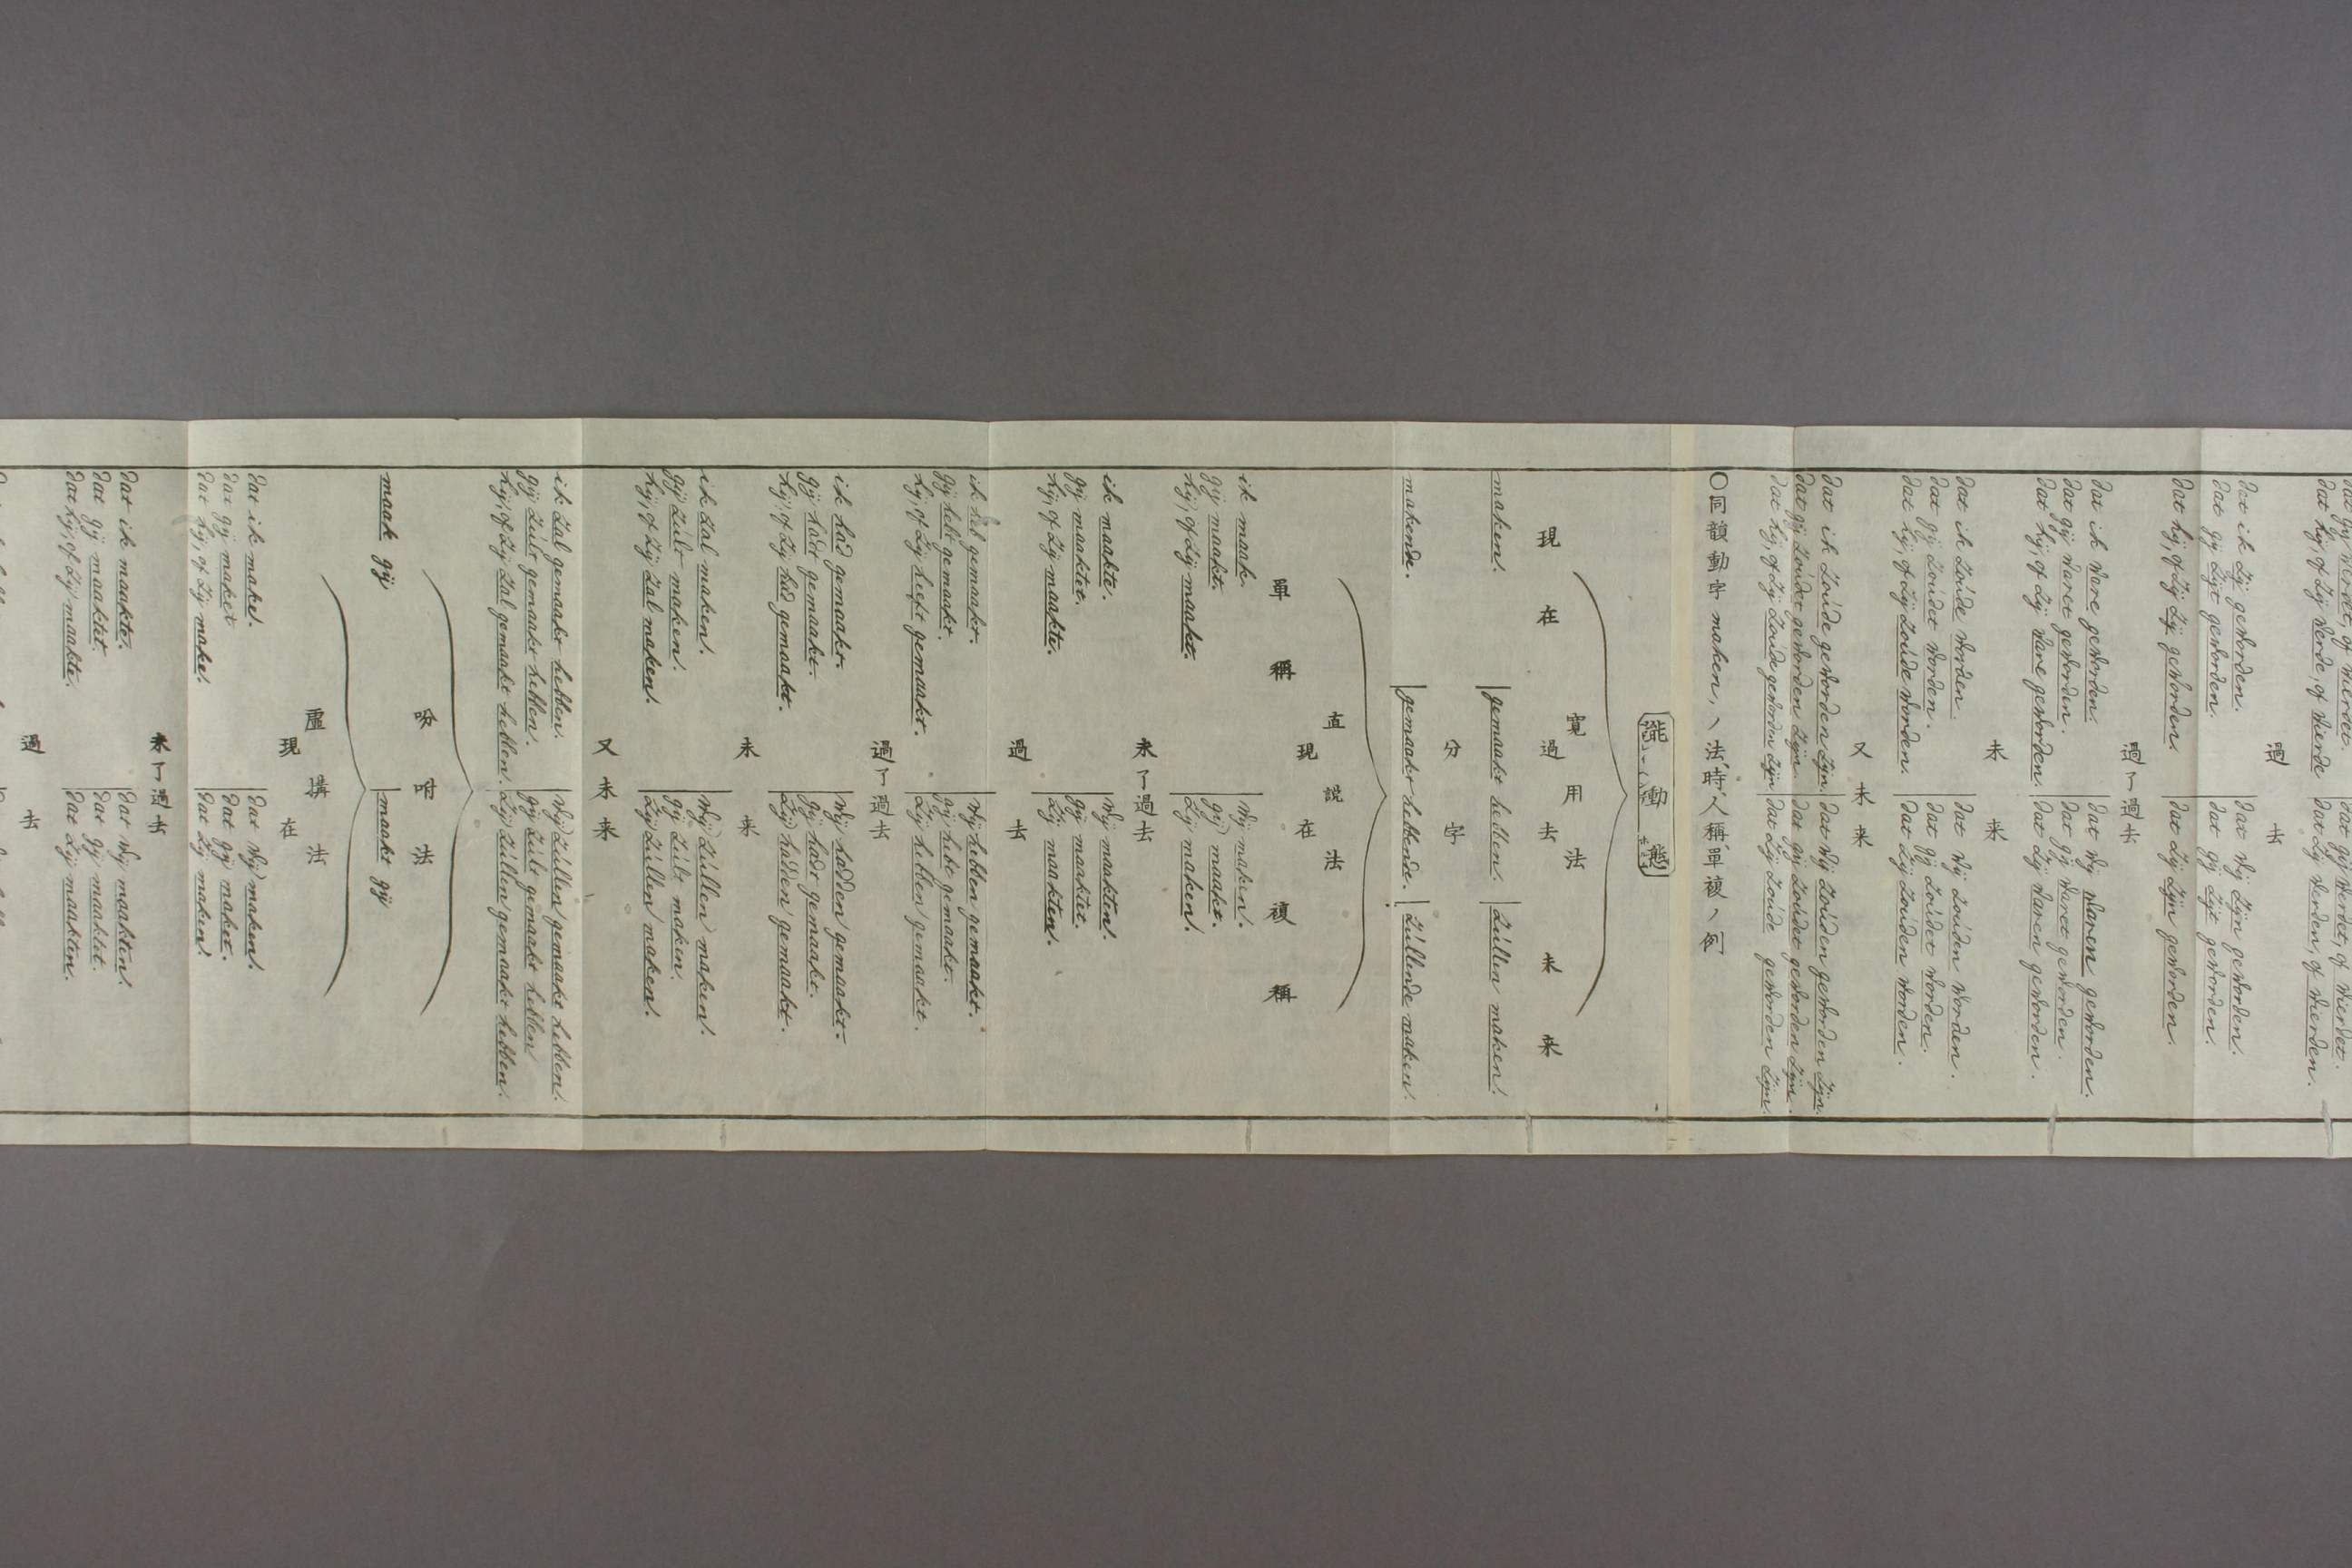 dat hij, of zij werde, of wierde | dat zij werden, of wierden.
過去
dat ik zij geworden. | dat wij zijn geworden.
dat gij zijt geworden. | dat gij zijt geworden.
dat hij, of zij zij geworden. | dat zij zijn geworden.
過了過去
dat ik ware geworden. | dat wij waren geworden.
dat gij waret geworden. | dat gij waret geworden.
dat hij, of zij ware geworden. | dat zij waren geworden.
未来
dat ik zoúde worden. | dat wij zoúden worden.
dat gij zoúdet worden. | dat gij zoúdet worden.
dat hij, of zij zoúde worden. | dat zij zoúden worden.
又未来
dat ik zoúde geworden zijn. | dat wij zoúden geworden zijn.
dat gij zoúdet geworden zijn. | dat gij zoúdet geworden zijn.
dat hij, of zij zoúde geworden zijn | dat zij zoúde geworden zijn.
〇同韻動字 maken, ノ法時人稱單複ノ例
能動態
寛用法
現在 過去 未来
maken. | gemaakt hebben. | zúllen maken.
分字
makende. | gemaakt hebbende. | zúllende maken.
直説法
現在
單稱 複稱
ik maak. | wij maken.
gij maakt. | gij maakt.
hij, of zij maakt. | zij maken.
未了過去
ik maakte. | wij maakten.
gij maaktet. | gij maaktet.
hij, of zij maakte. | zij maakten.
過去
ik heb gemaakt. | wij hebben gemaakt.
gij hebt gemaakt. | gij hebt gemaakt.
hij, of zij heft gemaakt. | zij hebben gemaakt.
過了過去
ik had gemaakt. | wij hadden gemaakt.
gij hadt gemaakt. | gij hadt gemaakt.
hij, of zij had gemaakt. | zij hadden gemaakt.
未来
ik zal maken. | wij zúllen maken.
gij zúlt maken. | gij zúlt maken.
hij, of zij zal maken. | zij zúllen maken.
又未来
ik zal gemaakt hebben. | wij zúllen gemaakt hebben.
gij zúlt gemaakt hebben. | gij zúlt gemaakt hebben
hij, of zij zal gemaakt hebben. | zij zúllen gemaakt hebben.
吩咐法
maak gij, | maakt gij
虚搆法
現在
dat ik make. | dat wij maken.
dat gij maket | dat gij maket.
dat hij, of zij make. | dat zij maken.
未了過去
dat ik maakte. | dat wij maakten.
dat gij maaktet. | dat gij maaktet.
dat hij, of zij maakte. | dat zij maakten.
過去